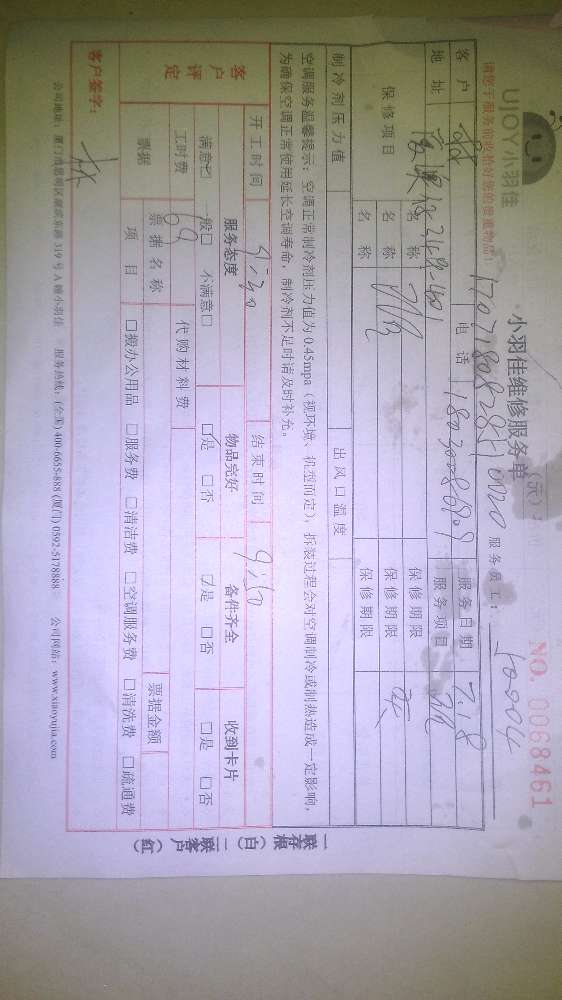 UJOY小羽佳
请您于服务前收拾好您的贵重物品!
小羽佳维修服务单
NO. 0068461
服务员工: 40004
客户 林 电话 18030086909 服务日期 7.18
地址 服务项目
保修项目 名称 保修期限
名称 保修期限
名称 保修期限
制冷剂压力值 出风口温度
空调服务温馨提示：空调正常制冷剂压力值为0.45mpa（视环境、机型而定），拆装过程会对空调制冷或制热造成一定影响，
为确保空调正常使用延长空调寿命，制冷剂不足时请及时补充。
开工时间 9:30 结束时间 9:50
客户评定 服务态度 物品完好 备件齐全 收到卡片
满意☑ 一般□ 不满意□ □是 □否 ☑是 □否 □是 □否
工时费 99 代购材料费
票据 票据名称 票据金额
项目 □搬办公用品 □服务费 □清洁费 □空调服务费 □清洗费 □疏通费
客户签字: 林
公司地址: 厦门市思明区湖滨东路319号A幢小羽佳 服务热线: (全国) 400-6655-888 (厦门) 0592-5178888 公司网站: www.xiaoyujia.com
一联存根（白） 二联客户（红）